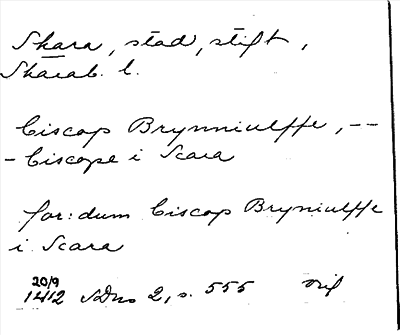 Skara, stad, stift,
Skarab. l.
biscop Brynniulffe, --
- biscope i Scara
for:dum biscop Bryniulffe
i Scara
20/9
1412 SDns 2, s. 555 orig